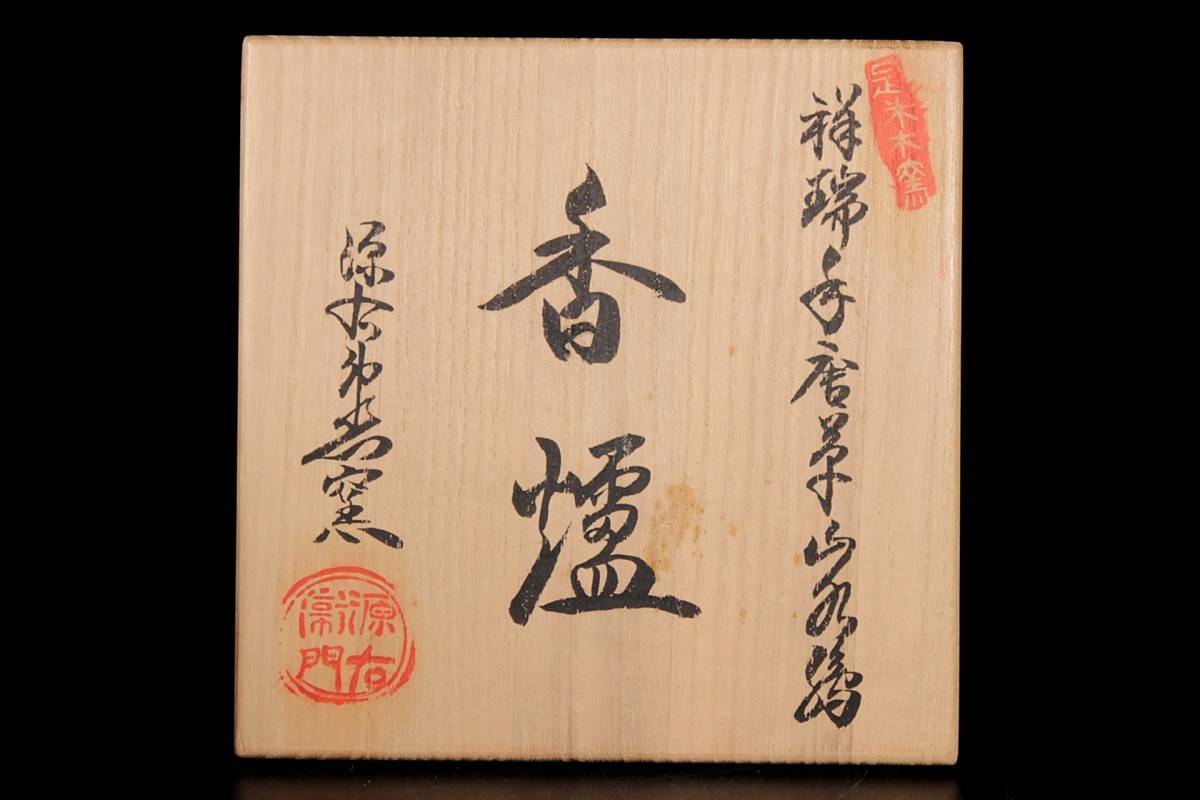 是米木窯
祥瑞手唐草山水
香爐
源右衛門窯
源右
衛門